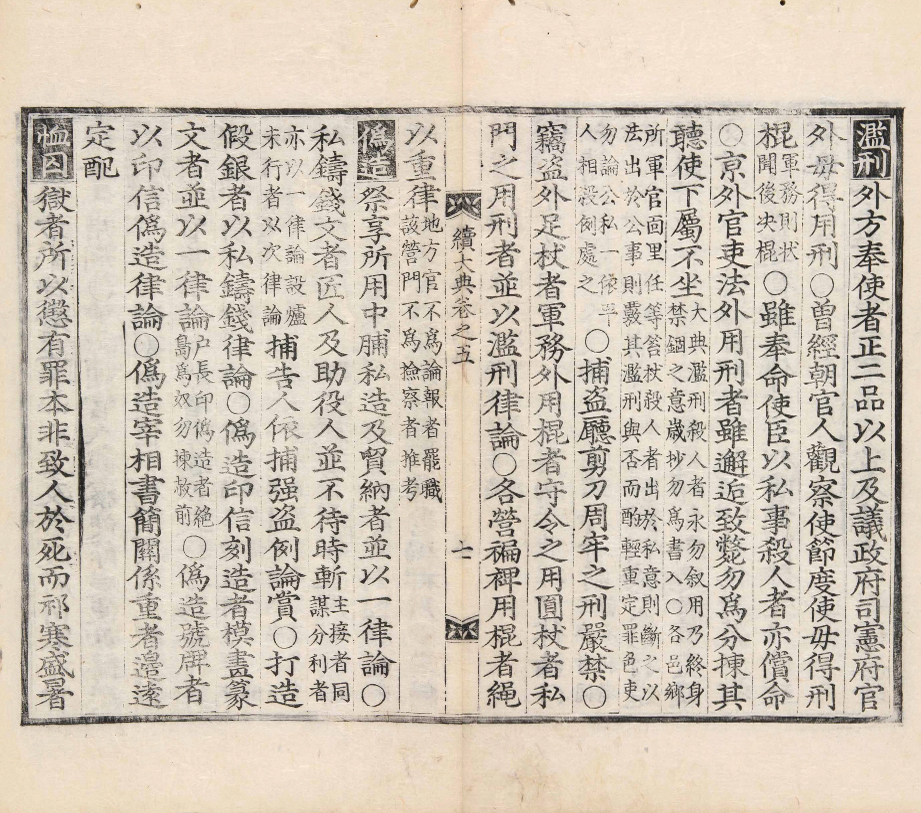 濫刑 外方奉使者正二品以上及議政府司憲府官
外毋得用刑〇曾經朝官人觀察使節度使毋得刑
棍 軍務則狀
聞後決棍 〇雖奉命使臣以私事殺人者亦償命
〇京外官吏法外用刑者雖邂逅致斃勿爲分揀其
聽使下屬不坐 大典濫刑殺人者永勿叙用乃終身
禁錮之意歲抄勿爲書入〇各邑鄕
所軍官面里任等笞杖殺人者出於私意則斷之以
法出於公事則覈其濫刑與否而酌輕重定罪色吏
勿論公私一依平
人相殺例處之 〇捕盜廳剪刀周牢之刑嚴禁〇
竊盜外足杖者軍務外用棍者守令之用圓杖者私
門之用刑者並以濫刑律論〇各營褊裨用棍者繩
續大典卷之五
十一
以重律 地方官不爲論報者罷職
該營門不爲檢察者推考
僞造 祭享所用中脯私造及貿納者並以一律論〇
私鑄錢文者匠人及助役人並不待時斬 主接者同
謀分利者
亦以一律論設爐
未行者以次律論 捕告人依捕强盜例論賞〇打造
假銀者以私鑄錢律論〇僞造印信刻造者模畫篆
文者並以一律論 户長印僞造者絶
島爲奴勿揀赦前 〇僞造號牌者
以印信僞造律論〇僞造宰相書簡關係重者邊遠
定配
恤囚 獄者所以懲有罪本非致人於死而祁寒盛暑